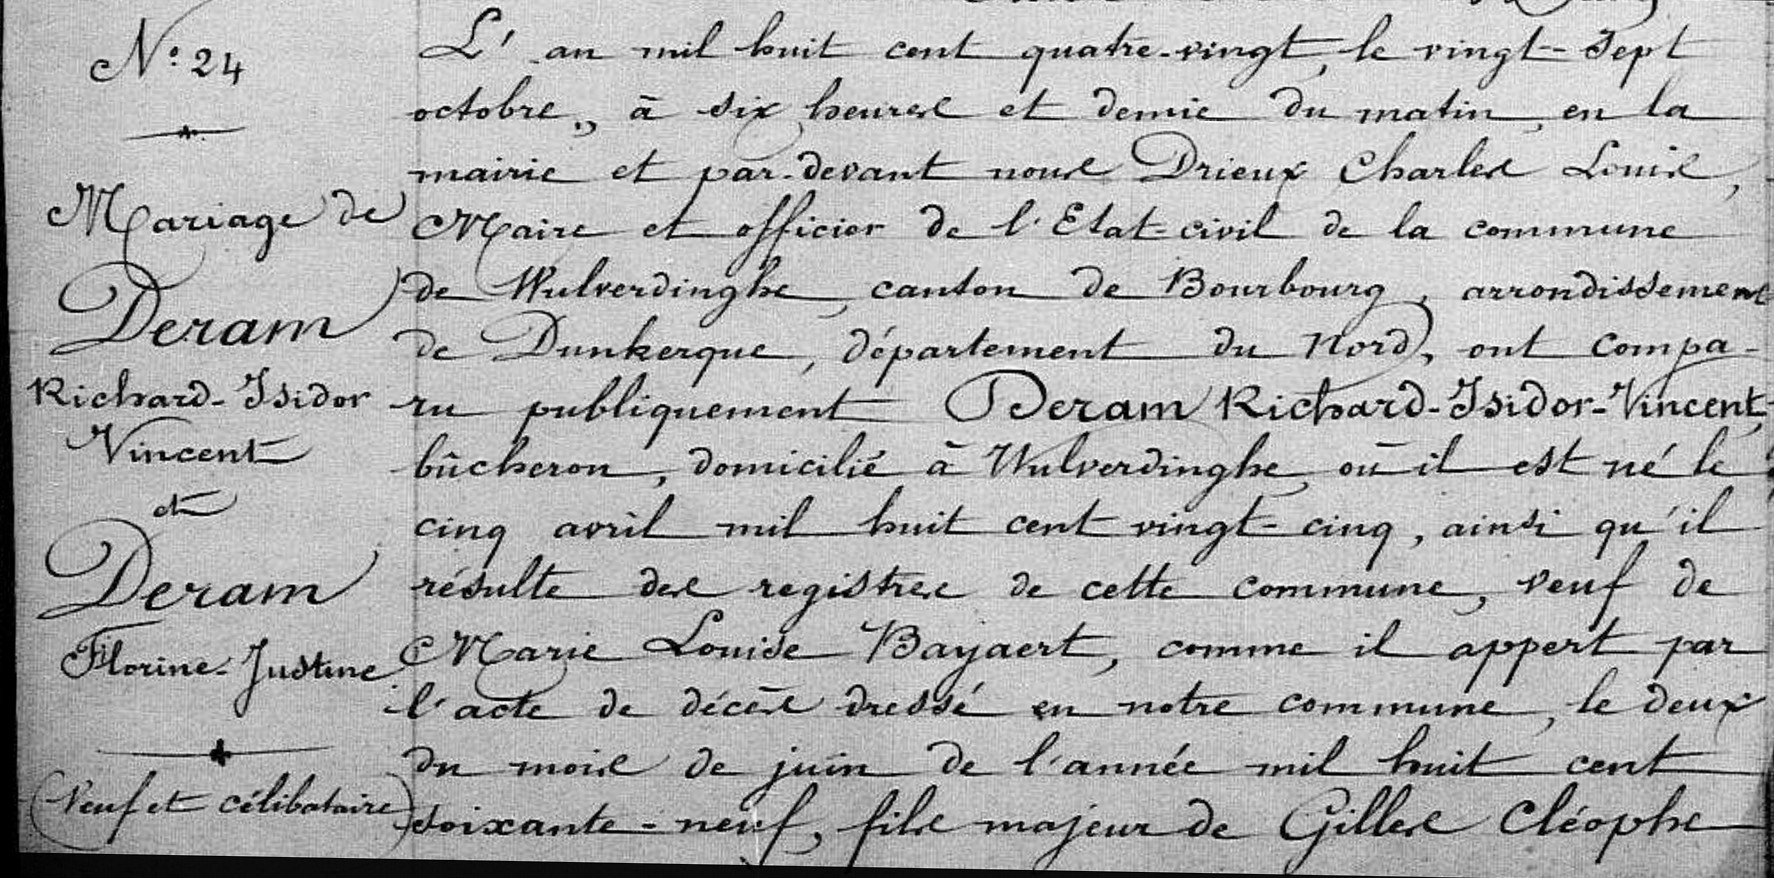 N.o 24
Mariage de
Deram
Richard-Isidor
Vincent
et
Deram
Florine-Justine
(Veuf et célibataire)
L'an mil huit cent quatre-vingt, le vingt-sept
octobre, à six heures et demie du matin, en la
mairie et par-devant nous Drieux Charles Louis,
Maire et officier de l'Etat-civil de la commune
de Wulverdinghe, canton de Bourbourg, arrondissement
de Dunkerque, département du Nord, ont compa-
ru publiquement Deram Richard-Isidor-Vincent,
bûcheron, domicilié à Wulverdinghe, où il est né le
cinq avril mil huit cent vingt-cinq, ainsi qu'il
résulte des registres de cette commune, veuf de
Marie Louise Bayaert, comme il appert par
l'acte de décès dressé en notre commune, le deux
du mois de juin de l'année mil huit cent
soixante-neuf, fils majeur de Gilles Cléophe